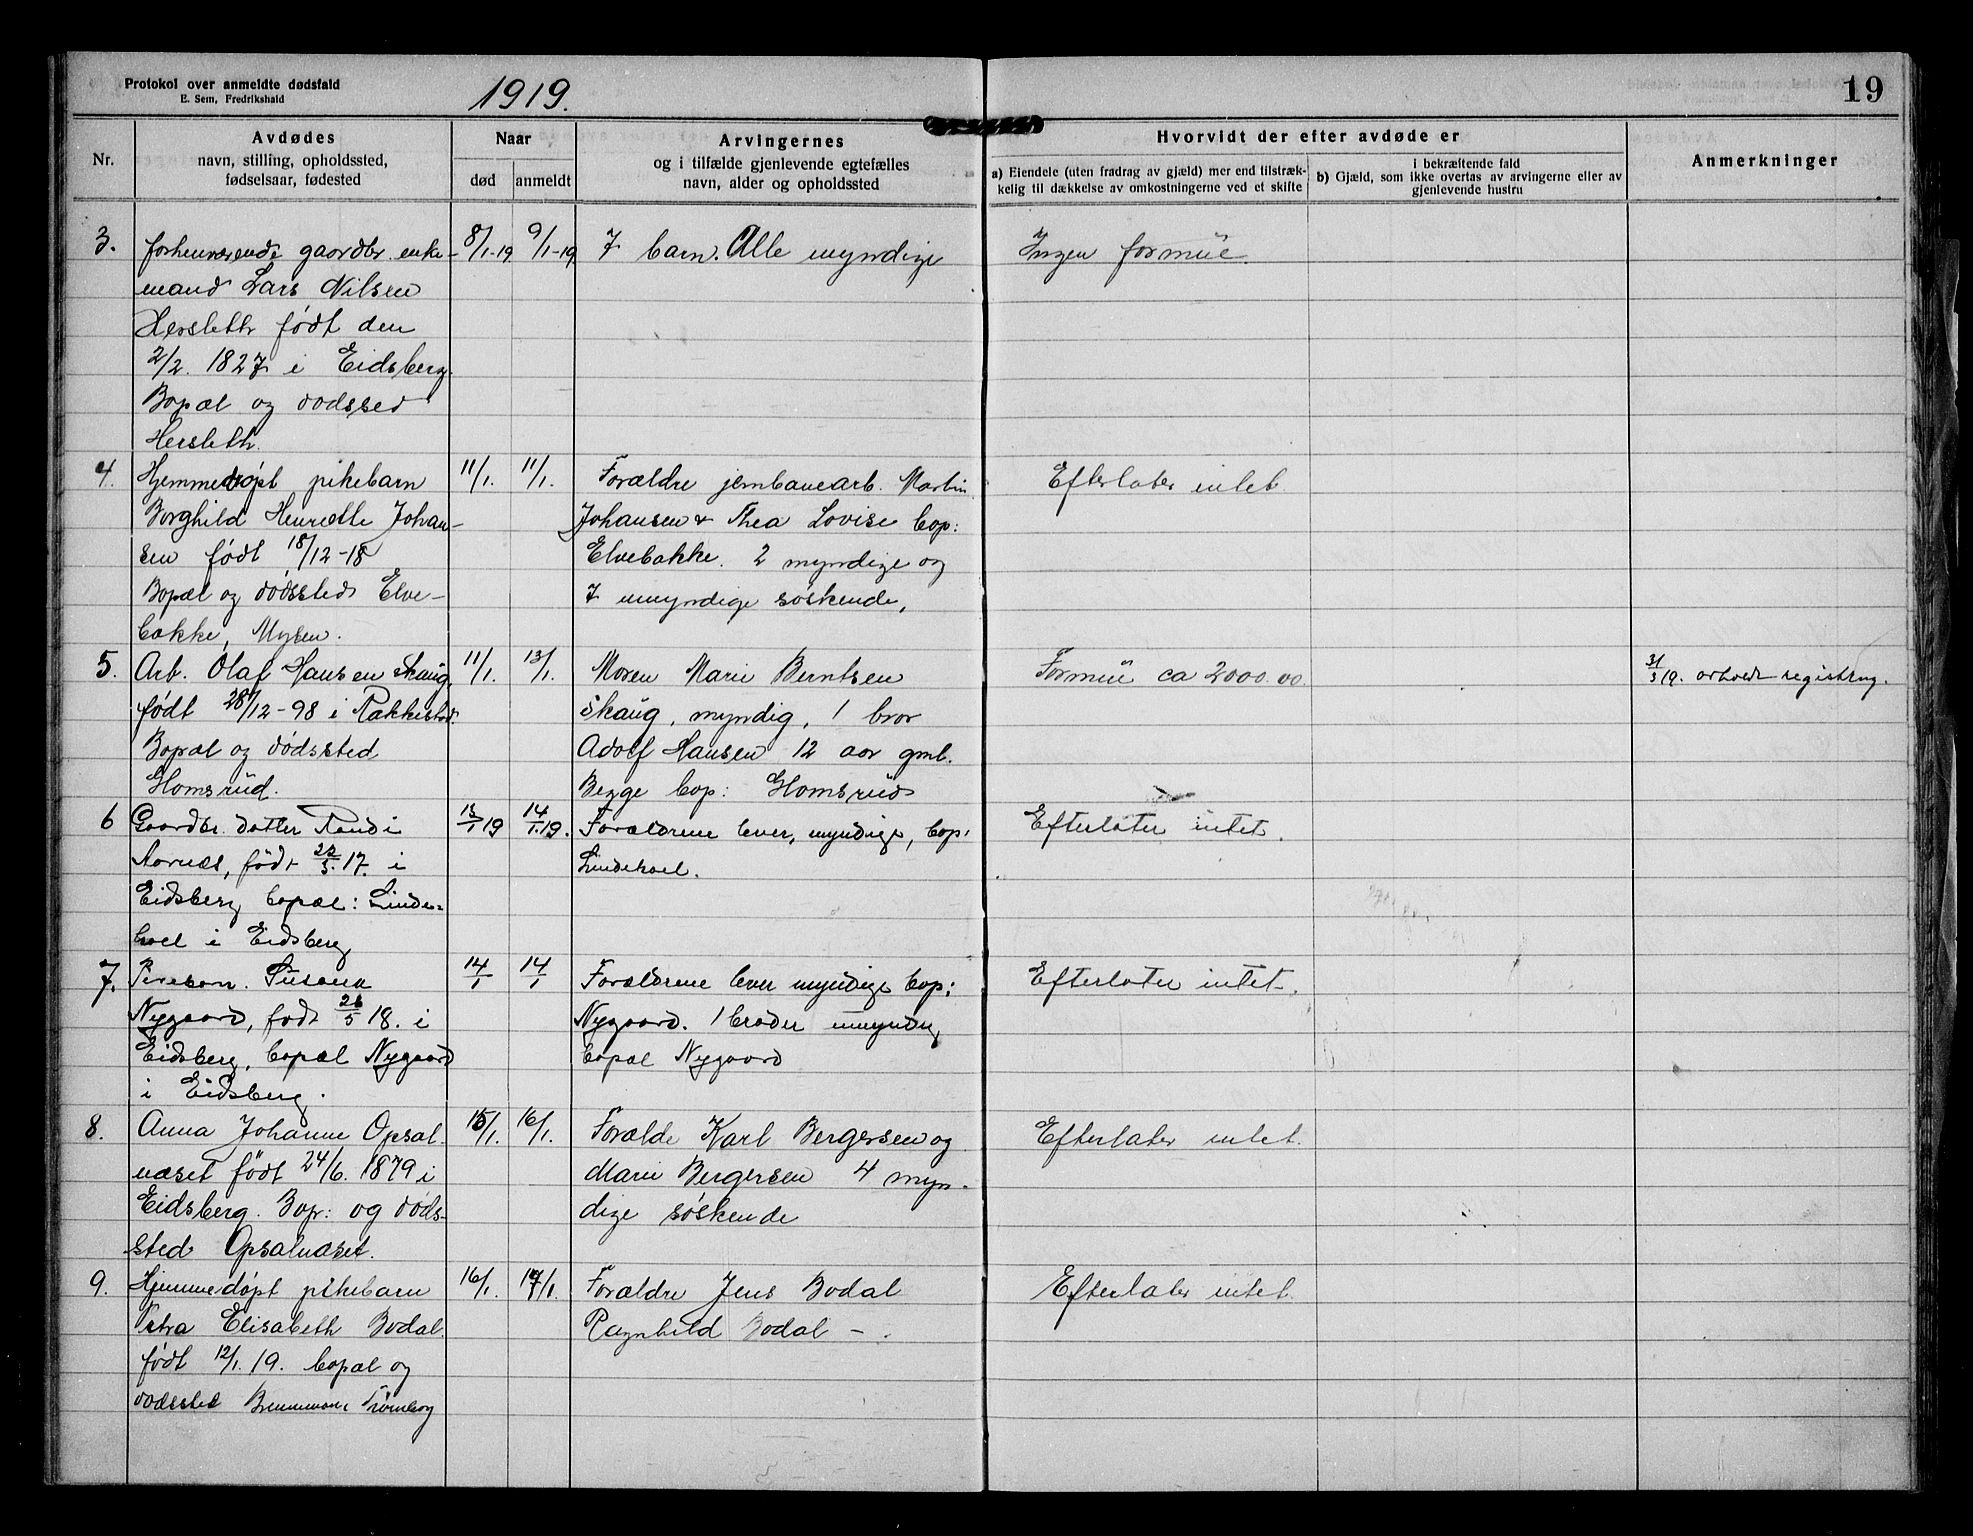 Protokol over anmeldte dødsfald
E. Sem, Fredrikshald
1919.
19
Nr.
Avdødes
navn, stilling, opholdssted,
fødselsaar, fødested
Naar
død
anmeldt
Arvingernes
og i tilfælde gjenlevende egtefælles
navn, alder og opholdssted
Hvorvidt der efter avdøde er
a) Eiendele (uten fradrag av gjæld) mer end tilstræk-
kelig til dækkelse av omkostningerne ved et skifte
i bekræftende fald
b) Gjæld, som ikke overtas av arvingerne eller av
gjenlevende hustru
Anmerkninger
3.
forhenværende gaardbr. enke-
mand Lars Nilsen
Hersleth født den
2/2. 1827 i Eidsberg.
Bopæl og dødssed
Hersleth.
8/1-19
9/1-19
7 barn. Alle myndige
Ingen formue.
4.
Hjemmedøpt pikebarn
Borghild Henriette Johan-
sen født 18/12-18
Bopæl og dødssted Elve-
bakke, Mysen.
11/1.
11/1.
Forældre jernbanearb. Martin
Johansen & Thea Lovise bop:
Elvebakke. 2 myndige og
7 umyndige søskende,
Efterlater intet
5.
Arb. Olaf Hansen Skaug,
født 28/12-98 i Rakkestad.
Bopæl og dødssted
Homsrud.
11/1.
13/1.
Moren Marie Berntsen
Skaug, myndig, 1 bror
Adolf Hansen 12 aar gml.
Begge bop: Homsrud
Formue ca 2000.00.
31/3 19. avholdt registrng.
6
Gaardbr. datter Randi
Aarnæs, født 22/3. 17. i
Eidsberg bopæl: Linde-
hoel i Eidsberg
13/1 19
14/1.19.
Forældrene lever, myndige, bop:
Lindehoel.
Efterlater intet.
7.
Pikebarn. Susana
Nygaard, født 26/5 18. i
Eidsberg, bopæl Nygaard
i Eidsberg.
14/1
14/1
Forældrene lever myndige bop:
Nygaard. 1 broder umyndig
bopæl Nygaard
Efterlater intet.
8.
Anna Johanne Opsal-
næset født 24/6. 1879 i
Eidsberg. Bop: og døds-
sted Opsalnæset.
15/1.
16/1.
Forælde Karl Bergersen og
Marie Bergersen 4 myn-
dige søskende
Efterlater intet.
9.
Hjemmedøpt pikebarn
Petra Elisabeth Bodal.
født 12/1. 19. bopæl og
dødssted Brennmoen, Trømborg
16/1.
17/1.
Forældre Jens Bodal
Ragnhild Bodal –.
Efterlater intet.